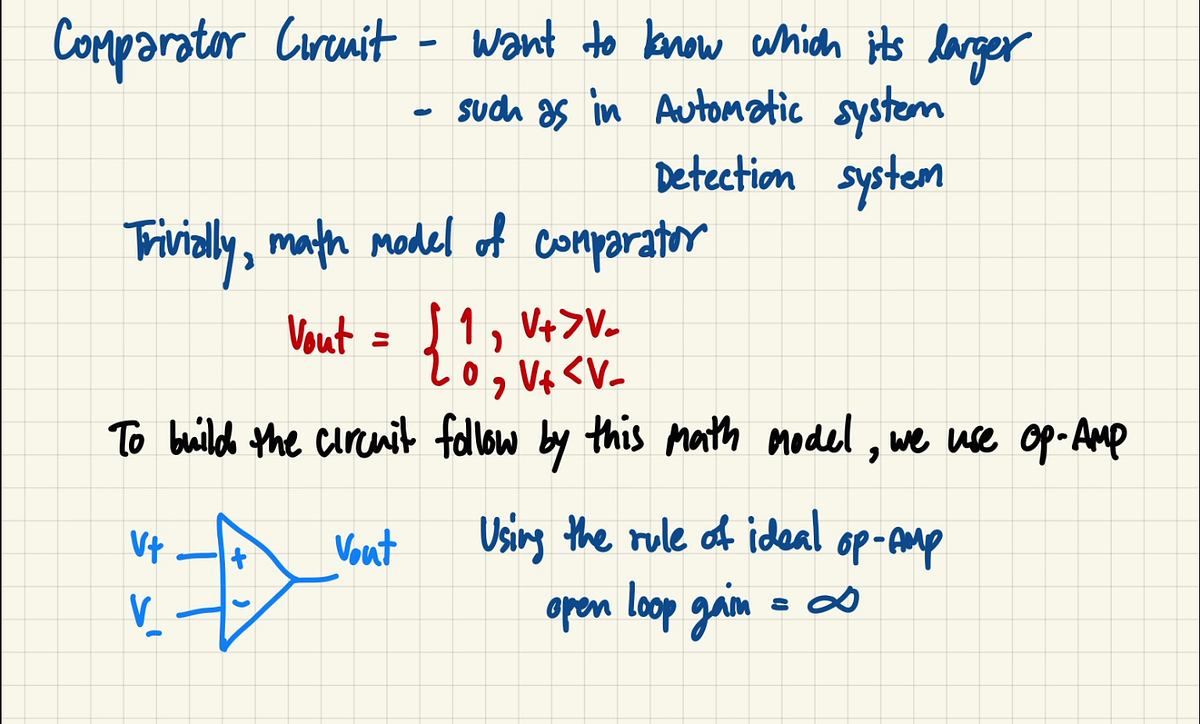 Comparator Circuit - want to know which its larger
- such as in Automatic system
Detection system
Trivially, math model of comparator
Vout = { 1, V+>V-
0, V+<V-
To build the circuit follow by this math model, we use op-Amp
V+ + Vout
V- -
Using the rule of ideal op-Amp
open loop gain = ∞